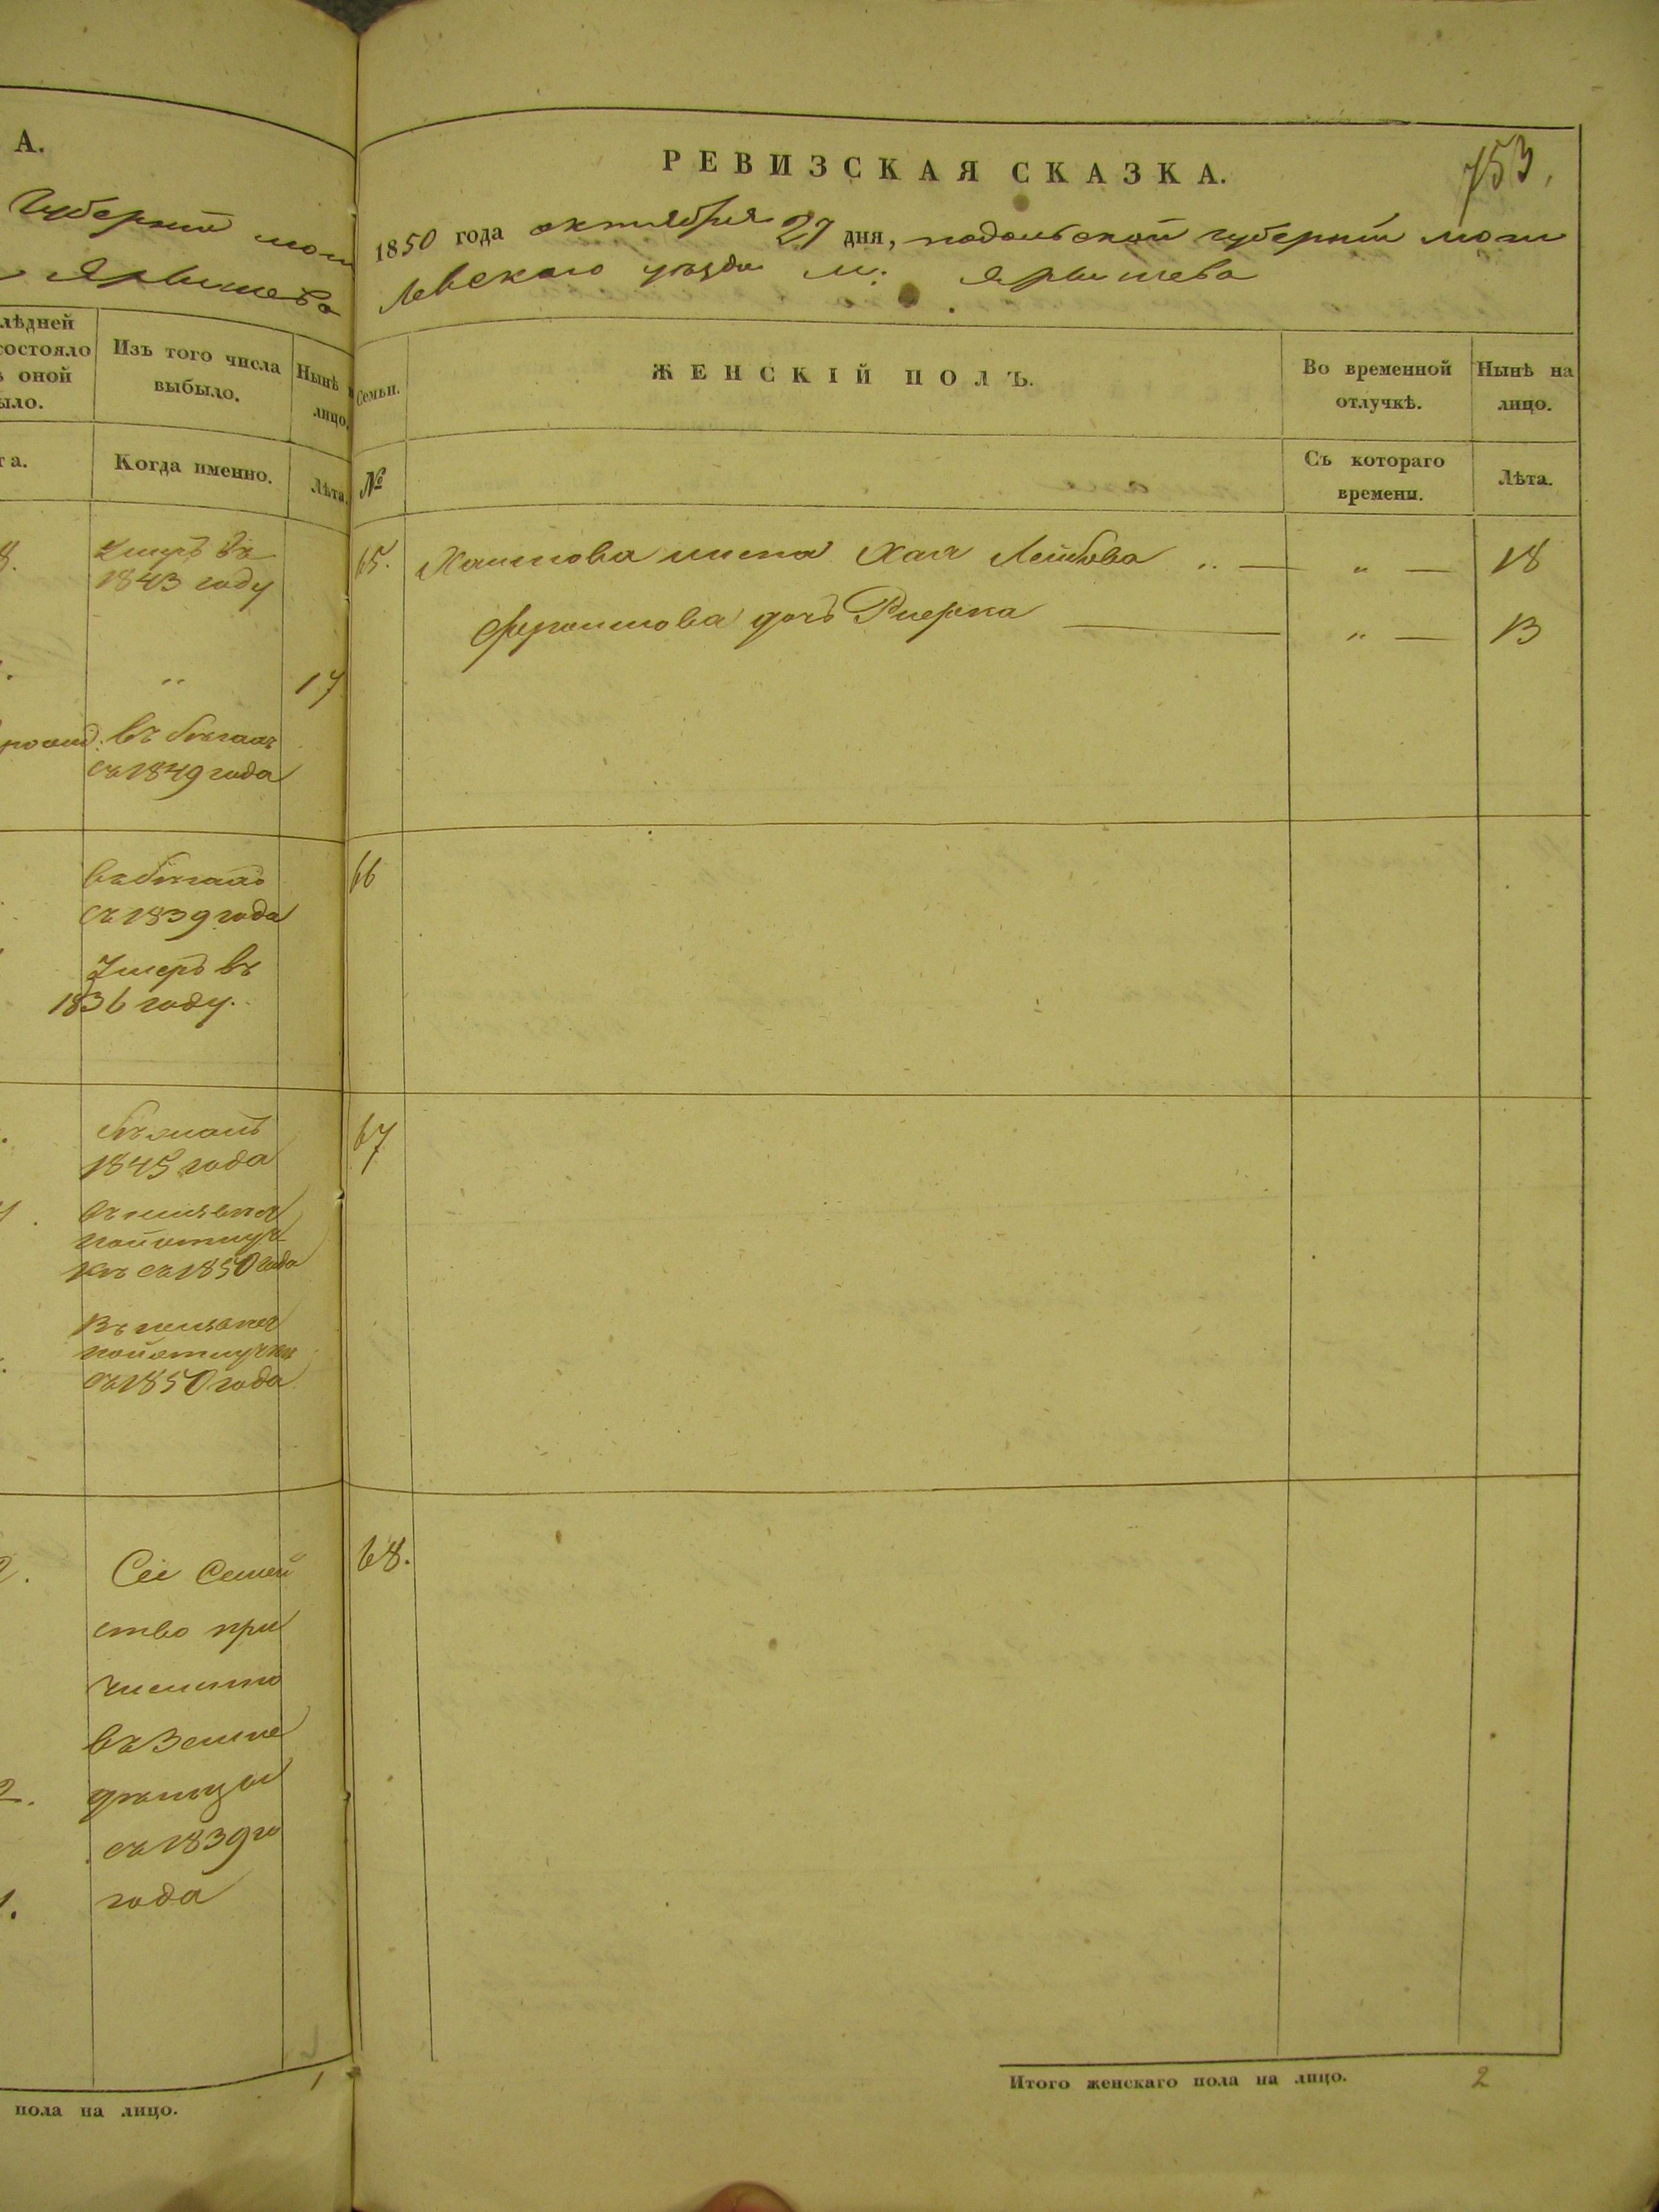 А.
Губерніи мог
Ярышева
лѣдней
состояло
ъ оной
ыло.
Изъ того числа
выбыло.
Нынѣ н
лицо.
та.
Когда именно.
Лѣта.
8.
Умеръ въ
1843 году
„
17
въ бѣгахъ
съ 1849 года
въ бѣгахъ
съ 1839 года
Умеръ въ
1836 году.
1845 года
съ 1850 года
съ 1850 года
2.
Сее Семей
ство при
числено
въ Земле
дѣльцы
съ 1839 го
года
2.
1.
пола на лицо.
РЕВИЗСКАЯ СКАЗКА.
753.
1850 года октября 27 дня, подольской губерніи моги
левскаго уѣзда м: Ярышева
Семьи.
ЖЕНСКІЙ ПОЛЪ.
Во временной
отлучкѣ.
Нынѣ на
лицо.
№
Съ котораго
времени.
Лѣта.
65. Хаимова жена Хая Лейбова „ — „ — 18
дочь Ривка — „ — 13
66
67
68.
Итого женскаго пола на лицо. 2